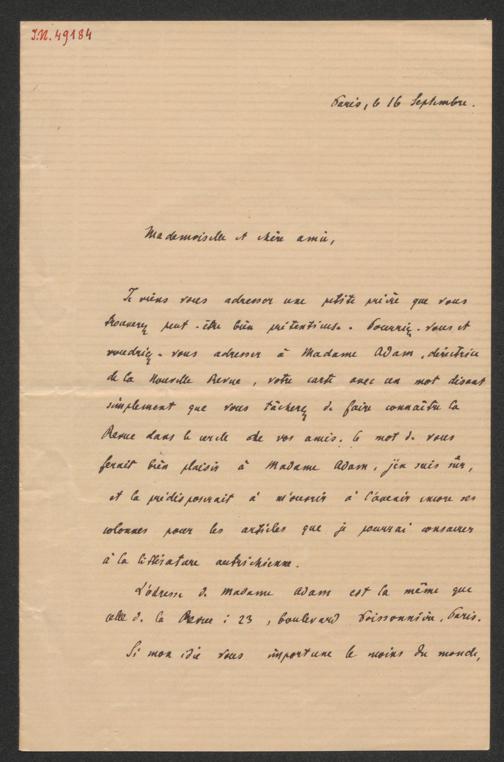 I.N. 49184
Paris, le 16 Septembre.
Mademoiselle et chère amie,
Je viens vous adresser une petite prière que vous
trouverez peut-être bien prétentieuse. Pourriez-vous et
voudriez-vous adresser à Madame Adam, directrice
de la Nouvelle Revue, votre carte avec un mot disant
simplement que vous tâcherez de faire connaître la
Revue dans le cercle de vos amis. Ce mot de vous
ferait bien plaisir à Madame Adam, j'en suis sûr,
et la prédisposerait à m'ouvrir à l'avenir encore ses
colonnes pour les articles que je pourrai consacrer
à la littérature autrichienne.
L'adresse de Madame Adam est la même que
celle de la Revue : 23, boulevard Poissonnière, Paris.
Si mon idée vous importune le moins du monde,